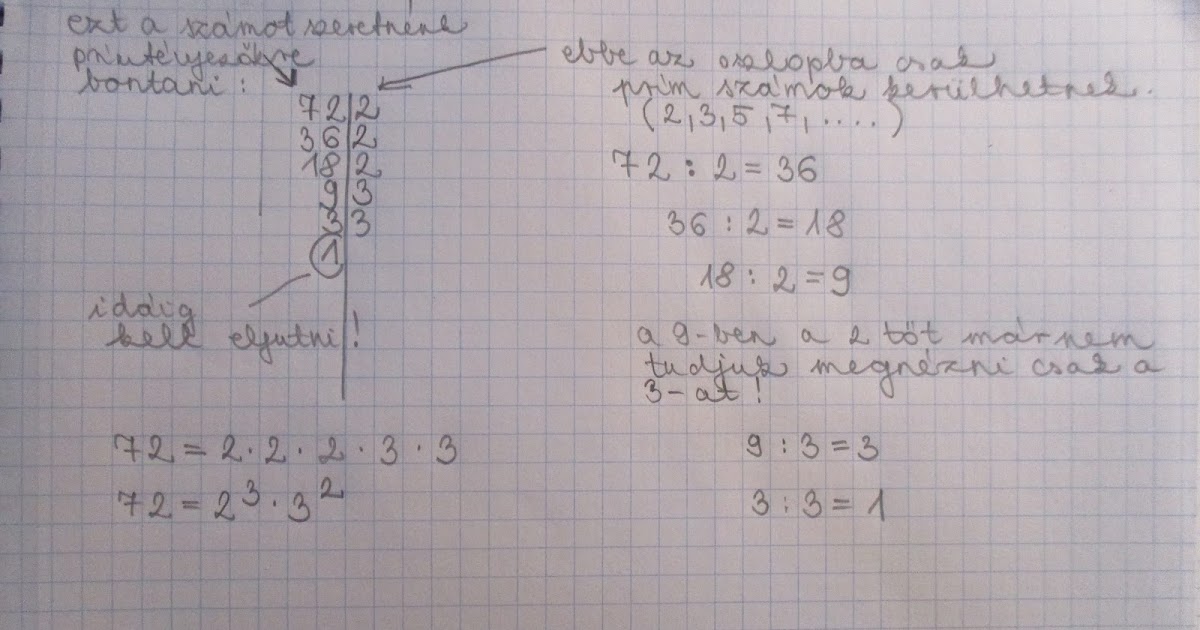 ezt a számot szeretnénk
prímtényezőkre
bontani:
72|2
36|2
18|2
9|3
3|3
1
idáig
kell eljutni!
72 = 2·2·2·3·3
72 = 2³·3²
ebbe az oszlopba csak
prím számok kerülhetnek.
(2,3,5,7,....)
72 : 2 = 36
36 : 2 = 18
18 : 2 = 9
a 9-ben a 2 tőt már nem
tudjuk megnézni csak a
3-at!
9 : 3 = 3
3 : 3 = 1